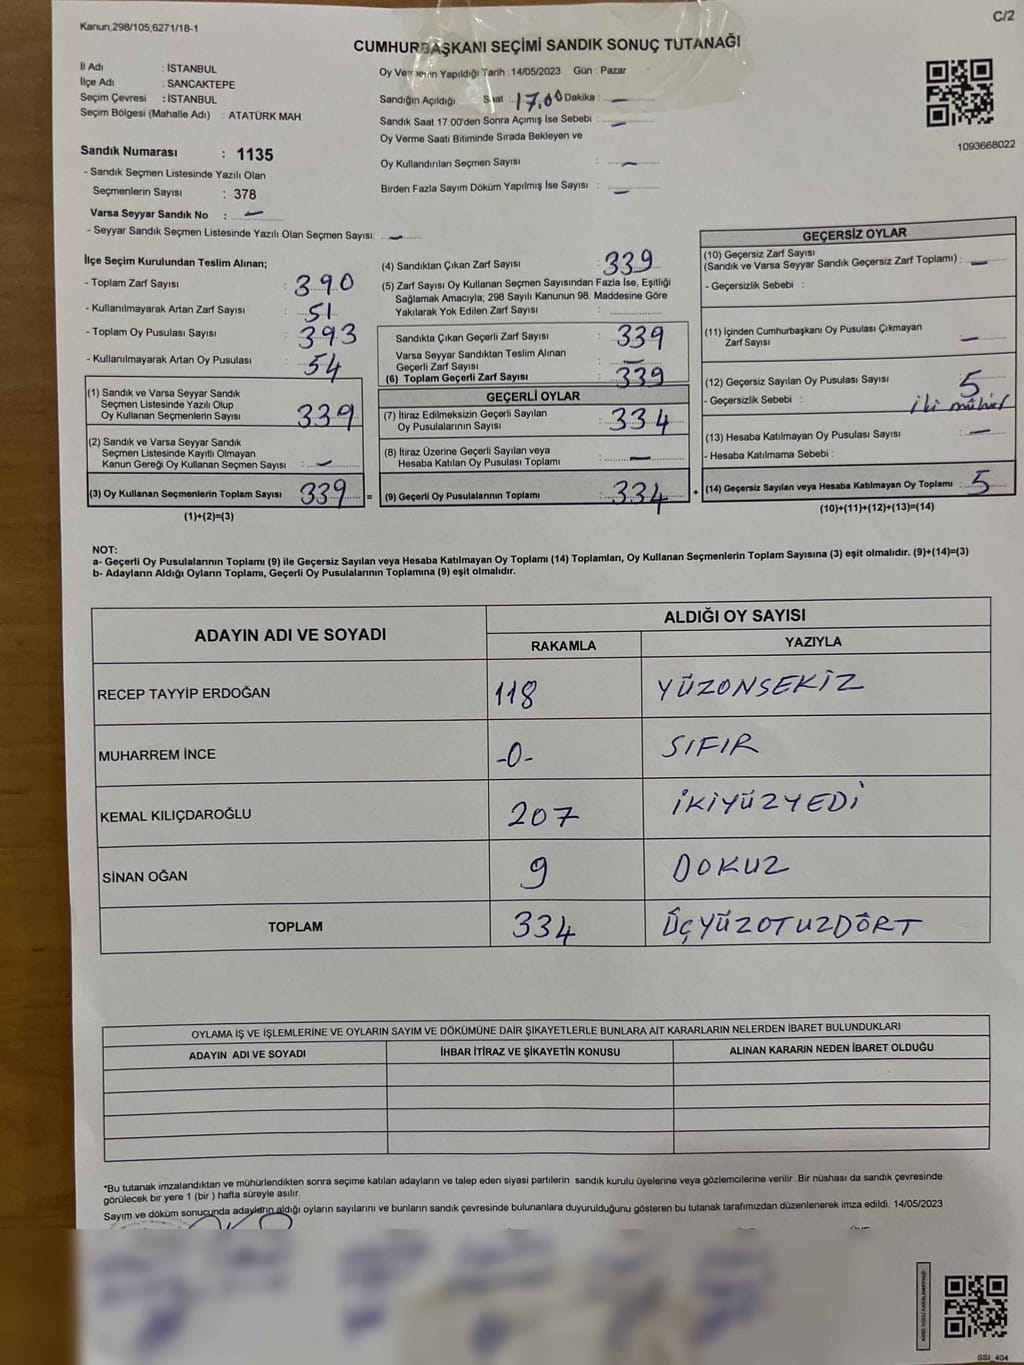 Kanun;298/105;6271/18-1
C/2
CUMHURBAŞKANI SEÇİMİ SANDIK SONUÇ TUTANAĞI
İl Adı : İSTANBUL
İlçe Adı : SANCAKTEPE
Seçim Çevresi : İSTANBUL
Seçim Bölgesi (Mahalle Adı) : ATATÜRK MAH.
Oy Vermenin Yapıldığı Tarih :14/05/2023 Gün : Pazar
Sandığın Açıldığı Saat : 17.00 Dakika : —
Sandık Saat 17:00'den Sonra Açımış İse Sebebi : —
Oy Verme Saati Bitiminde Sırada Bekleyen ve
Oy Kullandırılan Seçmen Sayısı : —
Birden Fazla Sayım Döküm Yapılmış İse Sayısı : —
1093668022
Sandık Numarası : 1135
- Sandık Seçmen Listesinde Yazılı Olan
Seçmenlerin Sayısı : 378
Varsa Seyyar Sandık No : —
- Seyyar Sandık Seçmen Listesinde Yazılı Olan Seçmen Sayısı: —
İlçe Seçim Kurulundan Teslim Alınan;
- Toplam Zarf Sayısı : 390
- Kullanılmayarak Artan Zarf Sayısı : 51
- Toplam Oy Pusulası Sayısı : 393
- Kullanılmayarak Artan Oy Pusulası : 54
(1) Sandık ve Varsa Seyyar Sandık
Seçmen Listesinde Yazılı Olup
Oy Kullanan Seçmenlerin Sayısı : 339
(2) Sandık ve Varsa Seyyar Sandık
Seçmen Listesinde Kayıtlı Olmayan
Kanun Gereği Oy Kullanan Seçmen Sayısı : —
(3) Oy Kullanan Seçmenlerin Toplam Sayısı : 339 =
(1)+(2)=(3)
(4) Sandıktan Çıkan Zarf Sayısı : 339
(5) Zarf Sayısı Oy Kullanan Seçmen Sayısından Fazla İse, Eşitliği
Sağlamak Amacıyla; 298 Sayılı Kanunun 98. Maddesine Göre
Yakılarak Yok Edilen Zarf Sayısı :
Sandıkta Çıkan Geçerli Zarf Sayısı : 339
Varsa Seyyar Sandıktan Teslim Alınan
Geçerli Zarf Sayısı : —
(6) Toplam Geçerli Zarf Sayısı : 339
GEÇERLİ OYLAR
(7) İtiraz Edilmeksizin Geçerli Sayılan
Oy Pusulalarının Sayısı : 334
(8) İtiraz Üzerine Geçerli Sayılan veya
Hesaba Katılan Oy Pusulası Toplamı : —
(9) Geçerli Oy Pusulalarının Toplamı : 334 +
GEÇERSİZ OYLAR
(10) Geçersiz Zarf Sayısı
(Sandık ve Varsa Seyyar Sandık Geçersiz Zarf Toplamı) : —
- Geçersizlik Sebebi :
(11) İçinden Cumhurbaşkanı Oy Pusulası Çıkmayan
Zarf Sayısı : —
(12) Geçersiz Sayılan Oy Pusulası Sayısı : 5
- Geçersizlik Sebebi : iki mühür
(13) Hesaba Katılmayan Oy Pusulası Sayısı : —
- Hesaba Katılmama Sebebi :
(14) Geçersiz Sayılan veya Hesaba Katılmayan Oy Toplamı : 5
(10)+(11)+(12)+(13)=(14)
NOT:
a- Geçerli Oy Pusulalarının Toplamı (9) ile Geçersiz Sayılan veya Hesaba Katılmayan Oy Toplamı (14) Toplamları, Oy Kullanan Seçmenlerin Toplam Sayısına (3) eşit olmalıdır. (9)+(14)=(3)
b- Adayların Aldığı Oyların Toplamı, Geçerli Oy Pusulalarının Toplamına (9) eşit olmalıdır.
ADAYIN ADI VE SOYADI ALDIĞI OY SAYISI
RAKAMLA YAZIYLA
RECEP TAYYİP ERDOĞAN 118 YÜZONSEKİZ
MUHARREM İNCE -0- SIFIR
KEMAL KILIÇDAROĞLU 207 İKİYÜZYEDİ
SİNAN OĞAN 9 DOKUZ
TOPLAM 334 ÜÇYÜZOTUZDÖRT
OYLAMA İŞ VE İŞLEMLERİNE VE OYLARIN SAYIM VE DÖKÜMÜNE DAİR ŞİKAYETLERLE BUNLARA AİT KARARLARIN NELERDEN İBARET BULUNDUKLARI
ADAYIN ADI VE SOYADI İHBAR İTİRAZ VE ŞİKAYETİN KONUSU ALINAN KARARIN NEDEN İBARET OLDUĞU
*Bu tutanak imzalandıktan ve mühürlendikten sonra seçime katılan adayların ve talep eden siyasi partilerin sandık kurulu üyelerine veya gözlemcilerine verilir. Bir nüshası da sandık çevresinde
görülecek bir yere 1 (bir) hafta süreyle asılır.
Sayım ve döküm sonucunda adayların aldığı oyların sayılarını ve bunların sandık çevresinde bulunanlara duyurulduğunu gösteren bu tutanak tarafımızdan düzenlenerek imza edildi. 14/05/2023
SSI_404